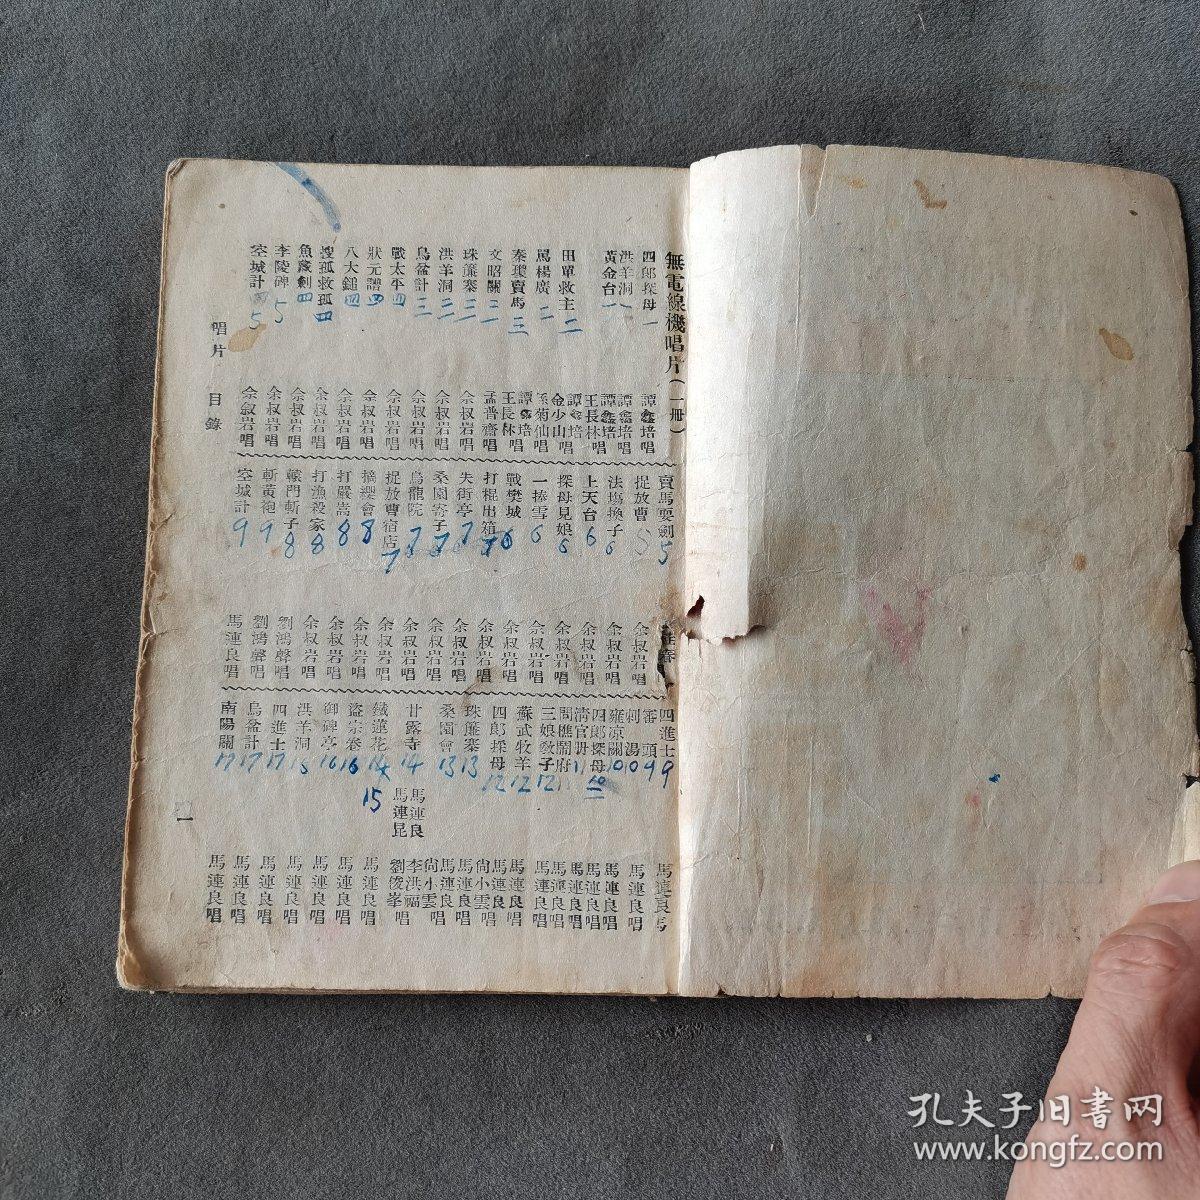 無電線機唱片（一册）
四郎探母一　譚鑫培唱
洪羊洞一　譚鑫培唱
黃金台一　王長林唱
田單救主二　譚鑫培 金少山唱
罵楊廣二　孫菊仙唱
秦瓊賣馬三　譚鑫培 王長林唱
文昭關二　孟普齋唱
珠簾寨三　余叔岩唱
洪羊洞三　余叔岩唱
烏盆計三　余叔岩唱
戰太平四　余叔岩唱
狀元譜四　余叔岩唱
八大鎚四　余叔岩唱
搜孤救孤四　余叔岩唱
魚藏劍四　余叔岩唱
李陵碑5　余叔岩唱
空城計5　余叔岩唱
賣馬耍劍5
捉放曹5　余叔岩唱
法塲換子6　余叔岩唱
上天台6　余叔岩唱
探母見娘6　余叔岩唱
一捧雪6　余叔岩唱
戰樊城6　余叔岩唱
打棍出箱7　余叔岩唱
失街亭7　余叔岩唱
桑園寄子7　余叔岩唱
烏龍院7　余叔岩唱
捉放曹宿店7　余叔岩唱
摘纓會8　余叔岩唱
打嚴嵩8　余叔岩唱
打漁殺家8　余叔岩唱
轅門斬子8　劉鴻聲唱
斬黃袍9　劉鴻聲唱
空城計9　馬連良唱
四進士9　馬連良
審頭刺湯9　馬連良唱
雍凉關10　馬連良唱
四郎探母10　馬連良唱
淸官册11　馬連良唱
問樵鬧府　馬連良唱
三娘敎子12　馬連良唱
蘇武牧羊12　馬連良唱
四郎探母12　馬連良 尙小雲唱
珠簾寨13　馬連良唱
桑園會13　馬連良 尙小雲唱
甘露寺14　馬連良 馬連昆 李洪福 劉俊峯唱
鐵蓮花14 15　馬連良唱
盜宗卷16　馬連良唱
御碑亭16　馬連良唱
洪羊洞　馬連良唱
四進士17　馬連良唱
烏盆計17　馬連良唱
南陽關17　馬連良唱
唱片　目錄
一
孔夫子旧書网
www.kongfz.com